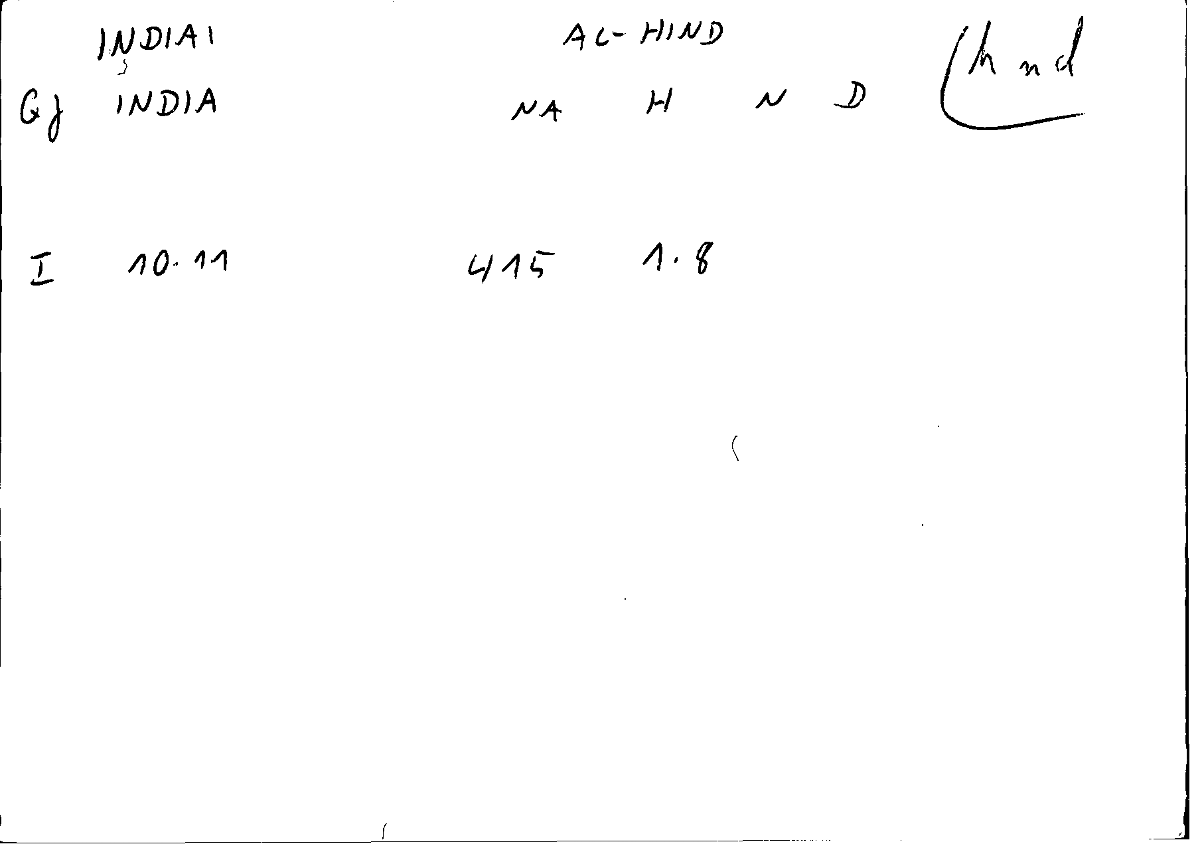 INDIAI AL-HIND hnd
GJ INDIA NA H N D
I 10.11 415 1.8